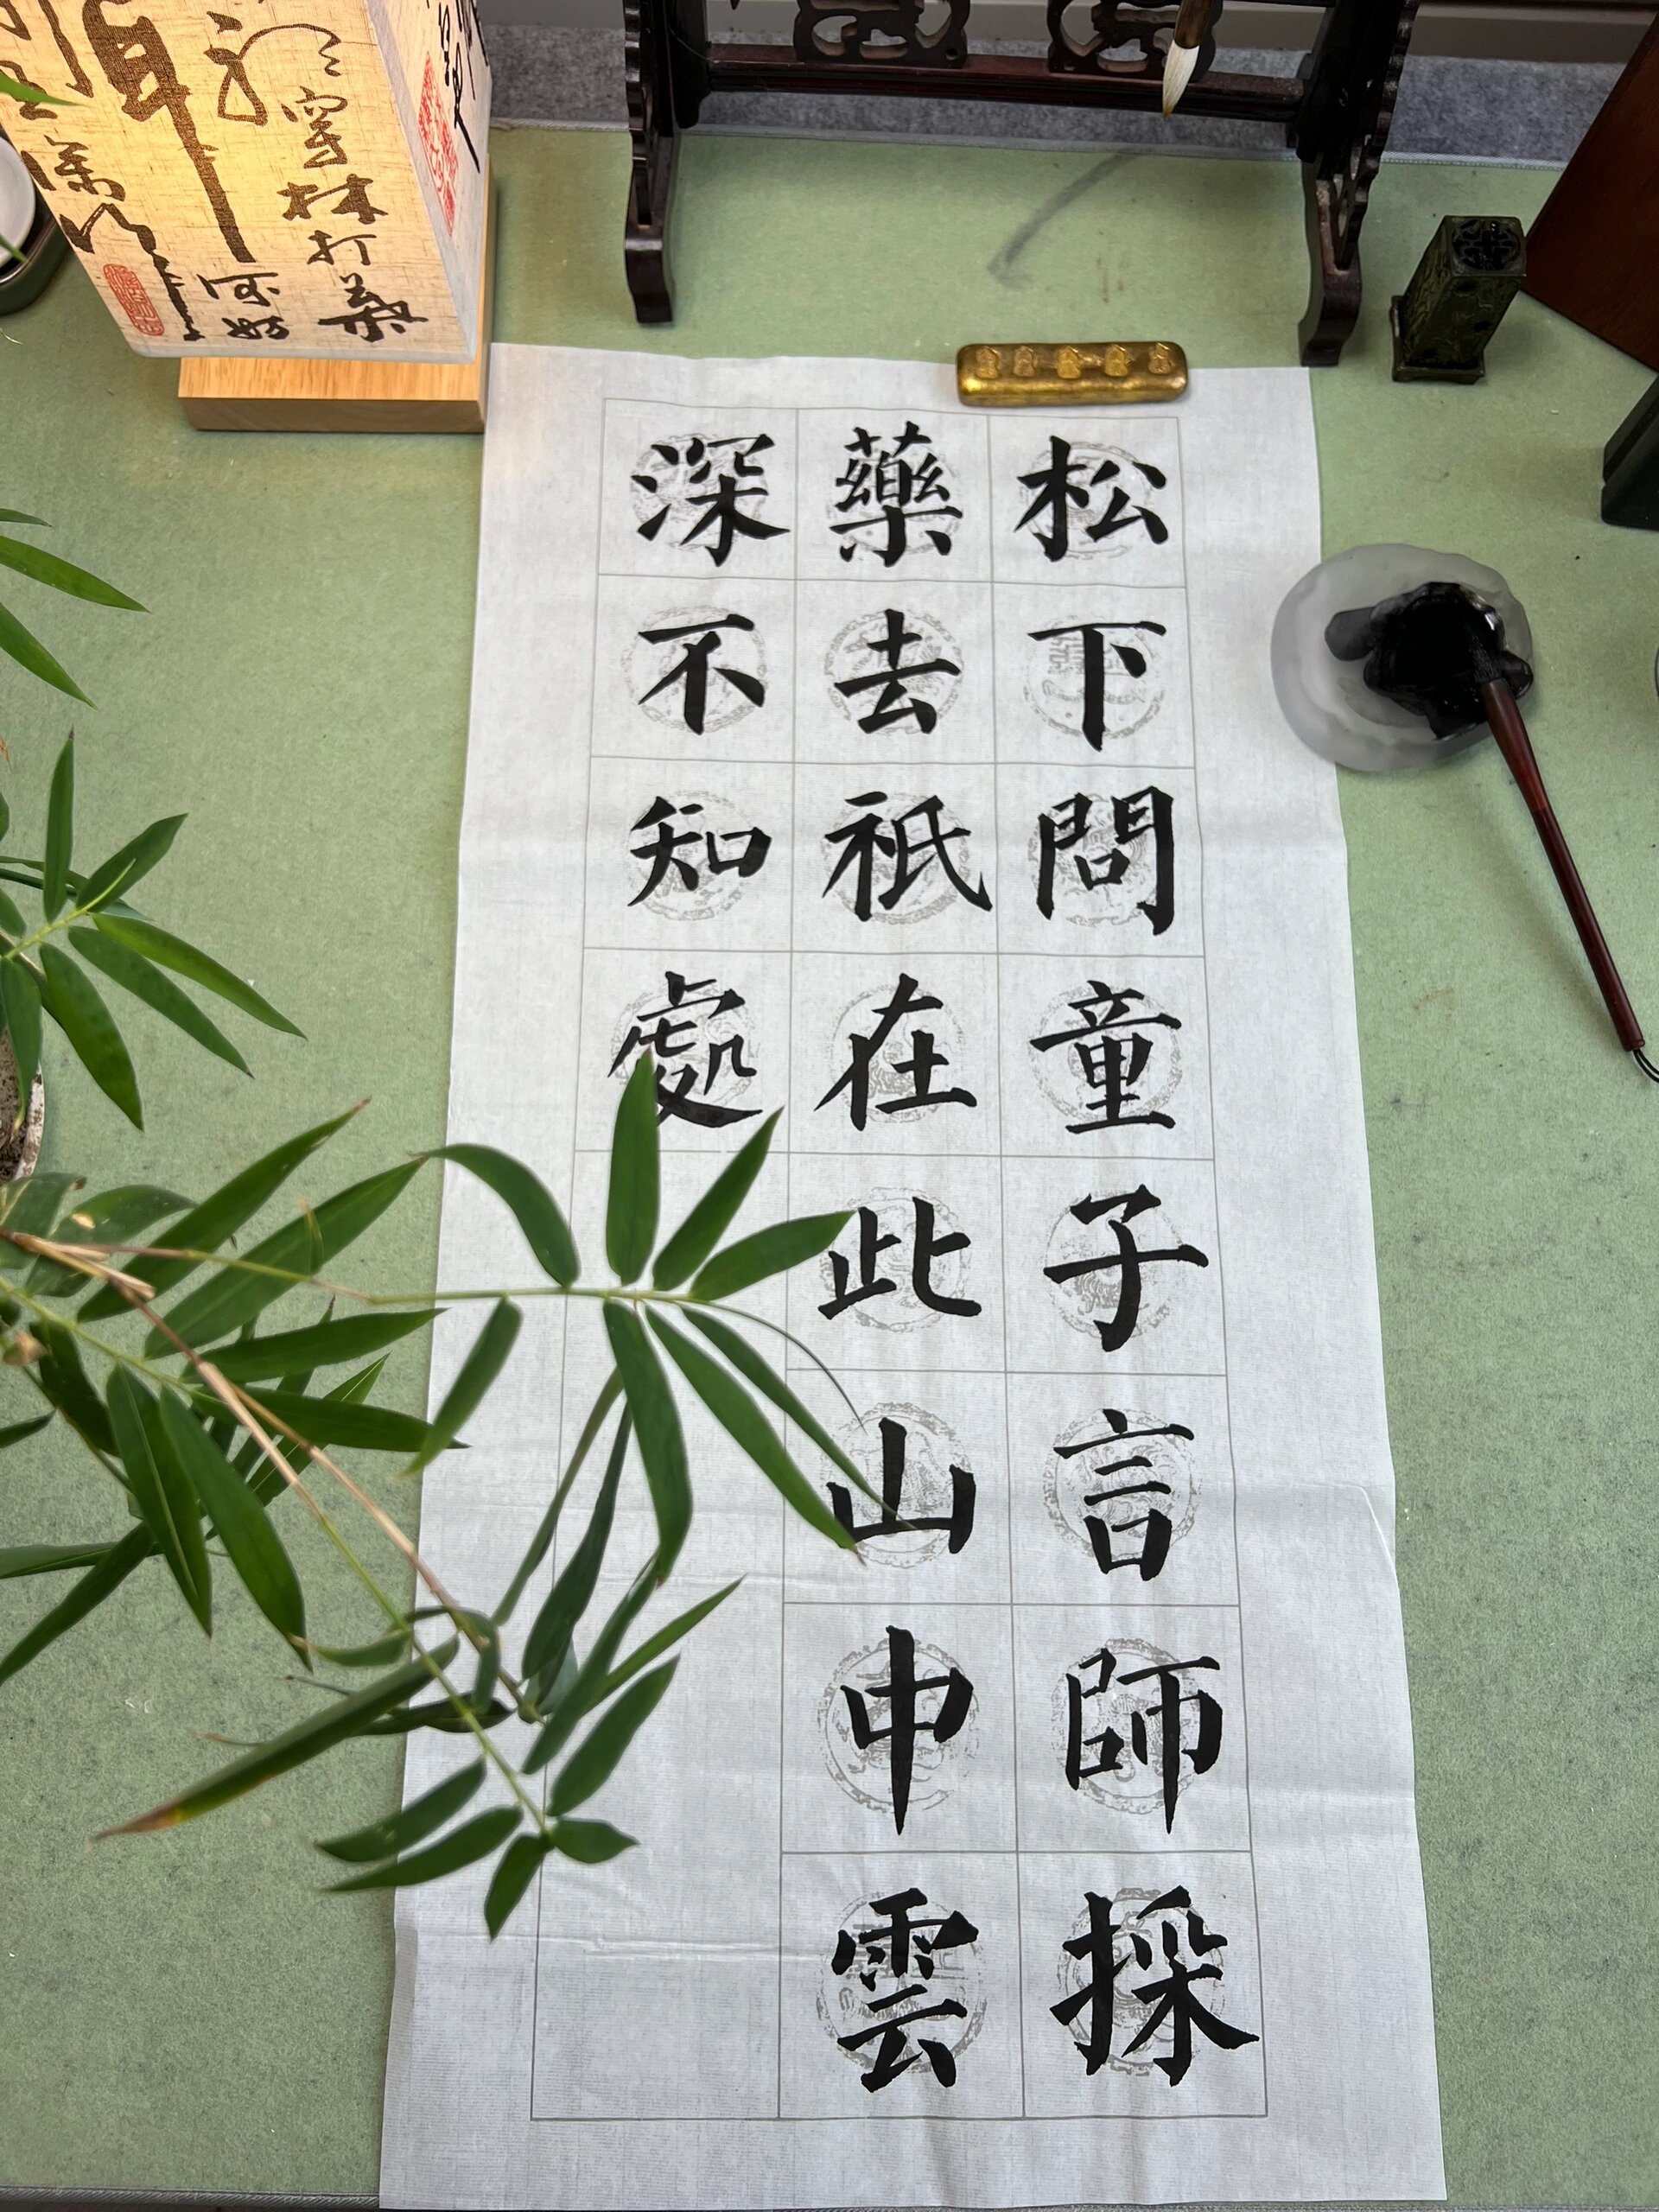 松下問童子言師採
藥去祇在此山中雲
深不知處
穿林打葉